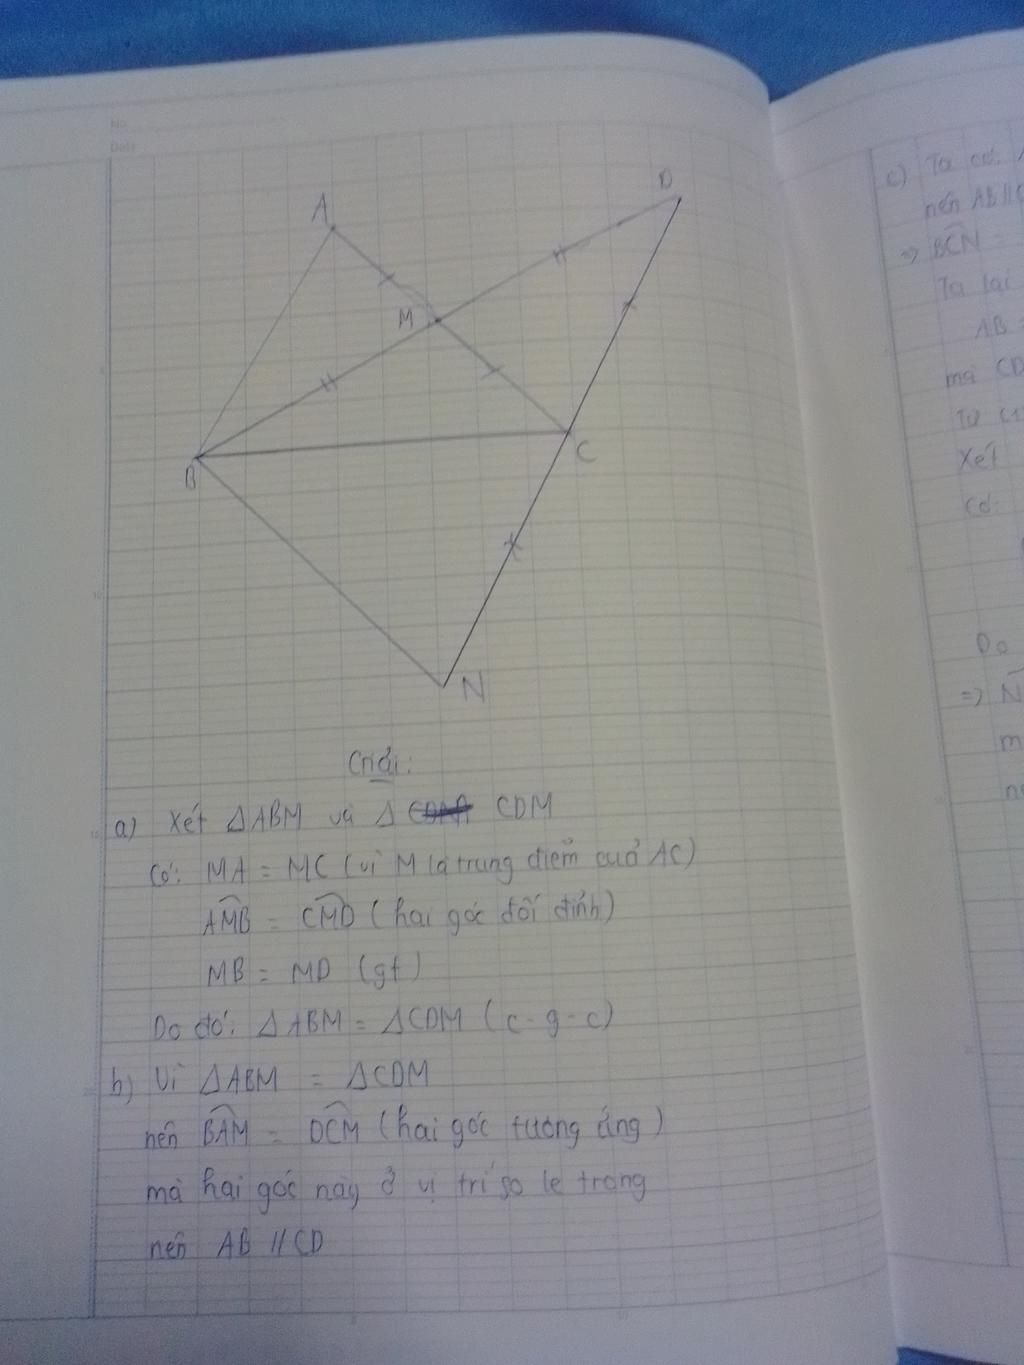 No.
Date
A
D
M
B
C
N
Giải:
a) Xét ΔABM và Δ CDM
Có: MA = MC (vì M là trung điểm cuả AC)
AMB = CMD (hai góc đối đỉnh)
MB = MD (gt)
Do đó: ΔABM = ΔCDM (c-g-c)
b) Vì ΔABM = ΔCDM
nên BAM = DCM (hai góc tương ứng)
mà hai góc này ở vị trí so le trong
nên AB // CD
c) Ta có:
nên AB //
=> BCN =
Ta lại
AB =
mà CD
Từ (1
Xét
Có:
Do
=> N
m